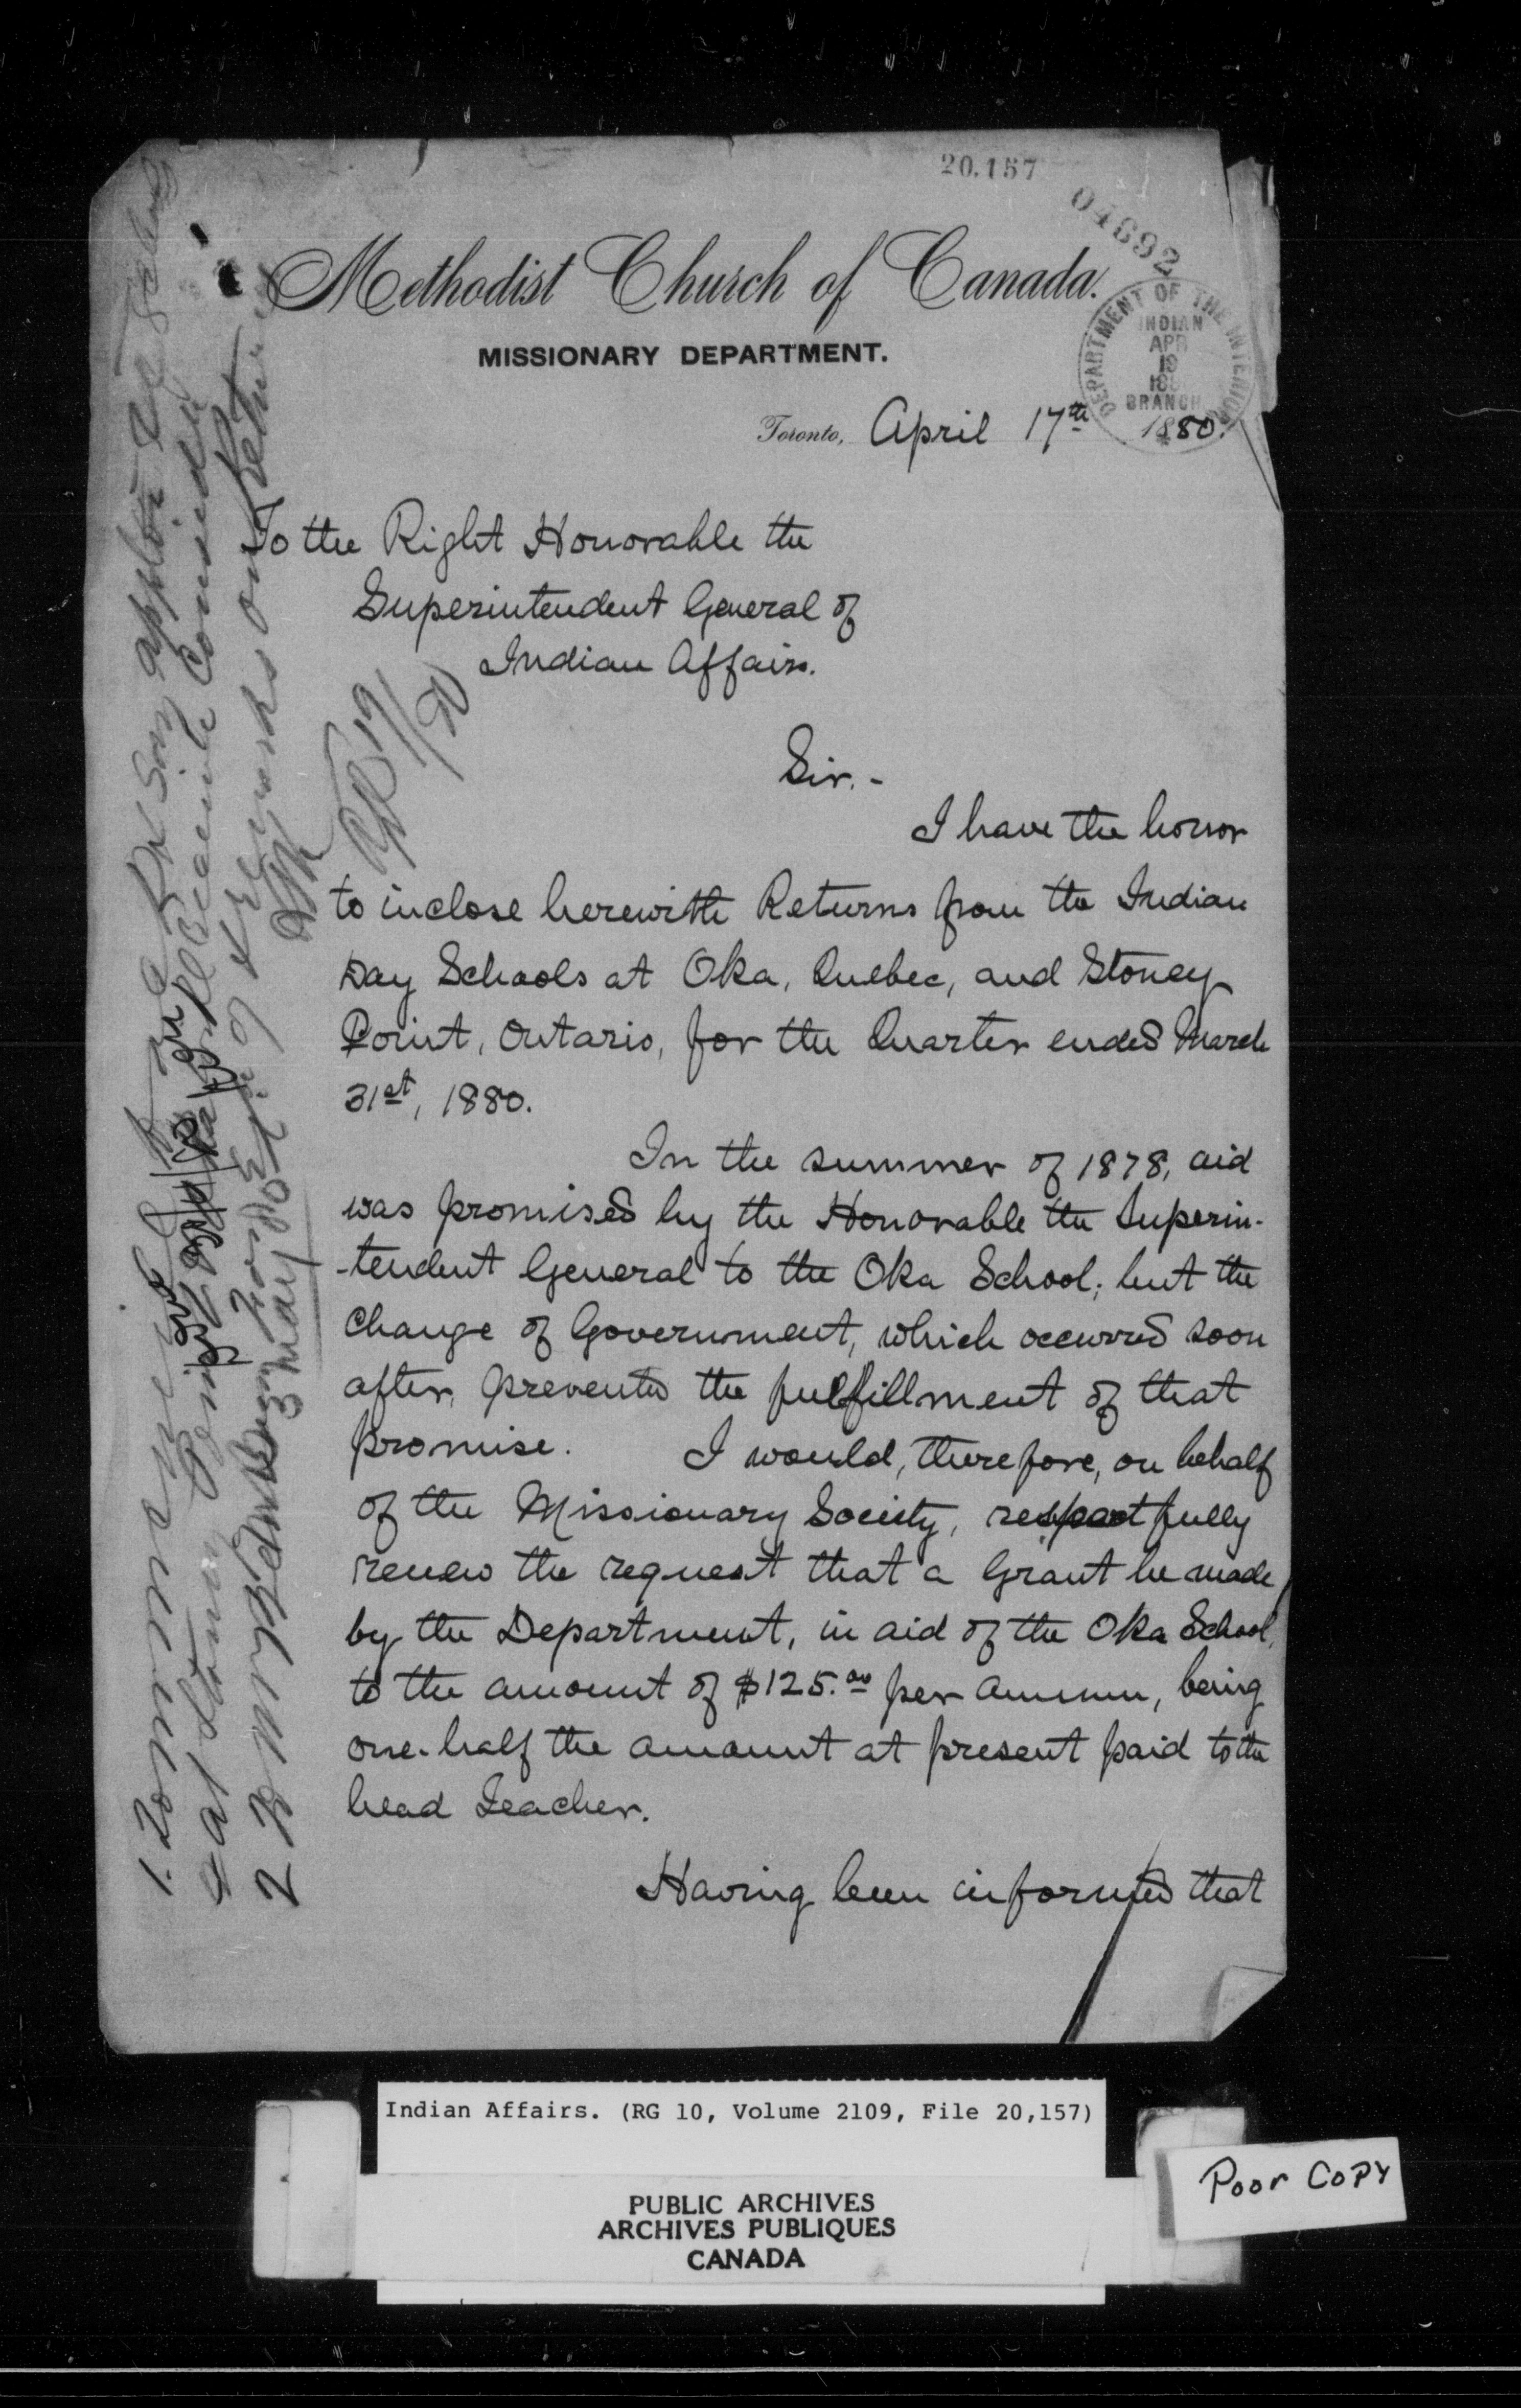 20.157
04692
Methodist Church of Canada.
MISSIONARY DEPARTMENT.
DEPARTMENT OF THE INTERIOR
INDIAN
APR
19
188
BRANCH
Toronto, April 17th 1880.
To the Right Honorable the
Superintendent General of
Indian Affairs.
Sir.-
I have the honor
to inclose herewith Returns from the Indian
Day Schools at Oka, Quebec, and Stoney
Point, Ontario, for the Quarter ended March
31st, 1880.
In the summer of 1878, aid
was promised by the Honorable the Superin-
-tendent General to the Oka School; but the
change of Government, which occurred soon
after, prevented the fulfillment of that
promise. I would, therefore, on behalf
of the Missionary Society, respectfully
renew the request that a Grant be made
by the Department, in aid of the Oka School,
to the amount of $125.00 per annum, being
one-half the amount at present paid to the
head Teacher.
Having been informed that
Indian Affairs. (RG 10, Volume 2109, File 20,157)
PUBLIC ARCHIVES
ARCHIVES PUBLIQUES
CANADA
Poor Copy